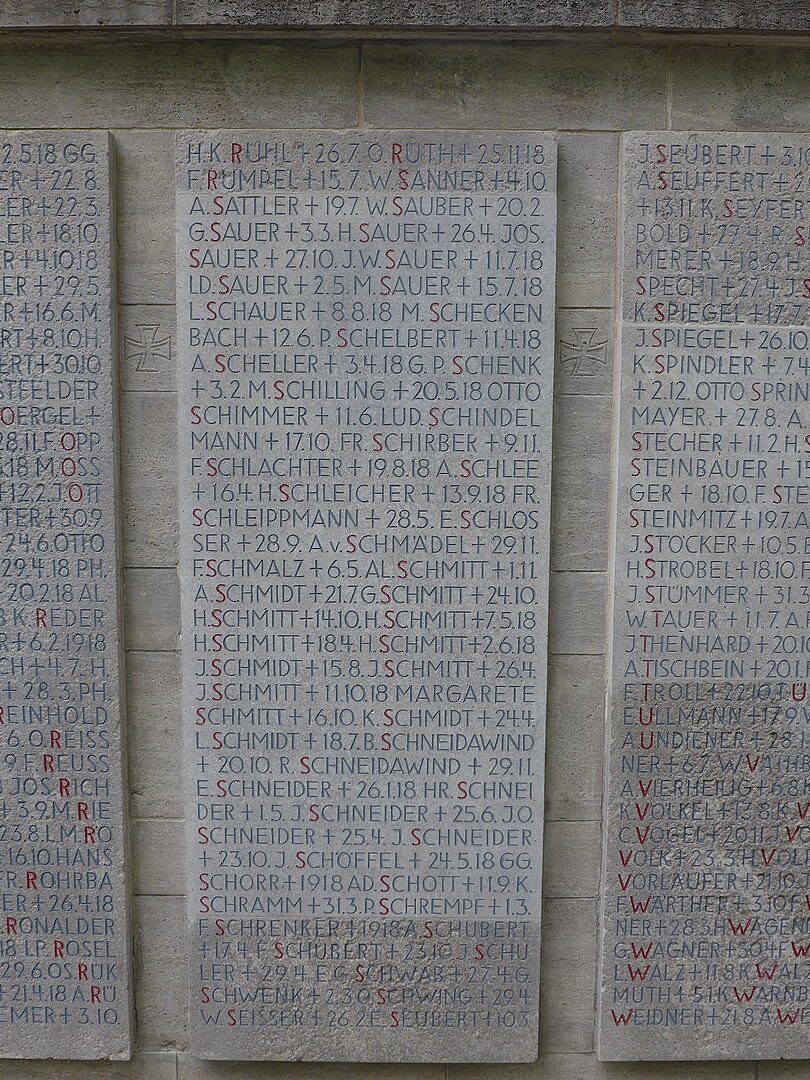 2.5.18 GG.
ER + 22.8.
LER + 22.3.
LER + 18.10.
R + 4.10.18
ER + 29.5
ER + 16.6. M.
RT + 8.10. H.
ERT + 30.10
STFELDER
OERGEL +
28.11. F. OPP
5.18 M. OSS
+ 12.2. J. OTT
TER + 30.9.
24.6. OTTO
29.4.18 PH.
20.2.18 AL
K. REDER
R + 6.2.1918
CH + 4.7. H.
+ 28.3. PH.
REINHOLD
6. O. REISS
9. F. REUSS
JOS. RICH
+ 3.9. M. RIE
23.8. L.M. RÖ
16.10. HANS
FR. ROHRBA
ER + 26.4.18
RONALDER
18 L.P. ROSEL
29.6. OS. RÜK
+ 21.4.18 A. RÜ
EMER + 3.10.
H.K. RÜHL + 26.7. O. RÜTH + 25.11.18
F. RUMPEL + 15.7. W. SANNER + 4.10.
A. SATTLER + 19.7. W. SAUBER + 20.2.
G. SAUER + 3.3. H. SAUER + 26.4. JOS.
SAUER + 27.10. J.W. SAUER + 11.7.18
LD. SAUER + 2.5. M. SAUER + 15.7.18
L. SCHAUER + 8.8.18 M. SCHECKEN
BACH + 12.6. P. SCHELBERT + 11.4.18
A. SCHELLER + 3.4.18 G.P. SCHENK
+ 3.2. M. SCHILLING + 20.5.18 OTTO
SCHIMMER + 11.6. LUD. SCHINDEL
MANN + 17.10. FR. SCHIRBER + 9.11.
F. SCHLACHTER + 19.8.18 A. SCHLEE
+ 16.4. H. SCHLEICHER + 13.9.18 FR.
SCHLEIPPMANN + 28.5. E. SCHLOS
SER + 28.9. A.v. SCHMÄDEL + 29.11.
F. SCHMALZ + 6.5. AL. SCHMITT + 1.11.
A. SCHMIDT + 21.7. G. SCHMITT + 24.10.
H. SCHMITT + 14.10. H. SCHMITT + 7.5.18
H. SCHMITT + 18.4. H. SCHMITT + 2.6.18
J. SCHMIDT + 15.8. J. SCHMITT + 26.4.
J. SCHMITT + 11.10.18 MARGARETE
SCHMITT + 16.10. K. SCHMIDT + 24.4.
L. SCHMIDT + 18.7. B. SCHNEIDAWIND
+ 20.10. R. SCHNEIDAWIND + 29.11.
E. SCHNEIDER + 26.1.18 HR. SCHNEI
DER + 1.5. J. SCHNEIDER + 25.6. J.O.
SCHNEIDER + 25.4. J. SCHNEIDER
+ 23.10. J. SCHÖFFEL + 24.5.18 GG.
SCHORR + 1918 AD. SCHOTT + 11.9. K.
SCHRAMM + 31.3. P. SCHREMPF + 1.3.
F. SCHRENKER + 1918 A. SCHUBERT
+ 17.4. F. SCHUBERT + 23.10. J. SCHU
LER + 29.4. E.G. SCHWAB + 27.4. G.
SCHWENK + 2.3. O. SCHWING + 29.4.
W. SEISSER + 26.2. E. SEUBERT + 10.3.
J. SEUBERT + 3.10
A. SEUFFERT + 2
+ 13.11. K. SEYFER
BOLD + 27.4. R. S
MERER + 18.9. H
SPECHT + 27.4. J. S
K. SPIEGEL + 17.7
J. SPIEGEL + 26.10
K. SPINDLER + 7.4
+ 2.12. OTTO SPRIN
MAYER + 27.8. A
STECHER + 11.2. H. S
STEINBAUER + 1
GER + 18.10. F. STE
STEINMITZ + 19.7. A
J. STÖCKER + 10.5
H. STROBEL + 18.10. F
J. STÜMMER + 31.3
W. TAUER + 11.7. A.
J. THENHARD + 20.10
A. TISCHBEIN + 20.1
F. TROLL + 22.10. T. Ü
E. ULLMANN + 17.9.
A. UNDIENER + 28.1
NER + 6.7. W. VATHB
A. VIERHEILIG + 6.8
K. VÖLKEL + 13.8. K. V
C. VOGEL + 20.11. J. VO
VOLK + 23.3. H. VOL
VORLAUFER + 21.10.
F. WARTHER + 3.10. F. W
NER + 28.3. H. WAGEN
G. WAGNER + 30.4. F. W
L. WALZ + 11.8. K. WAL
MUTH + 5.1. K. WARNB
WEIDNER + 21.8. A. WE